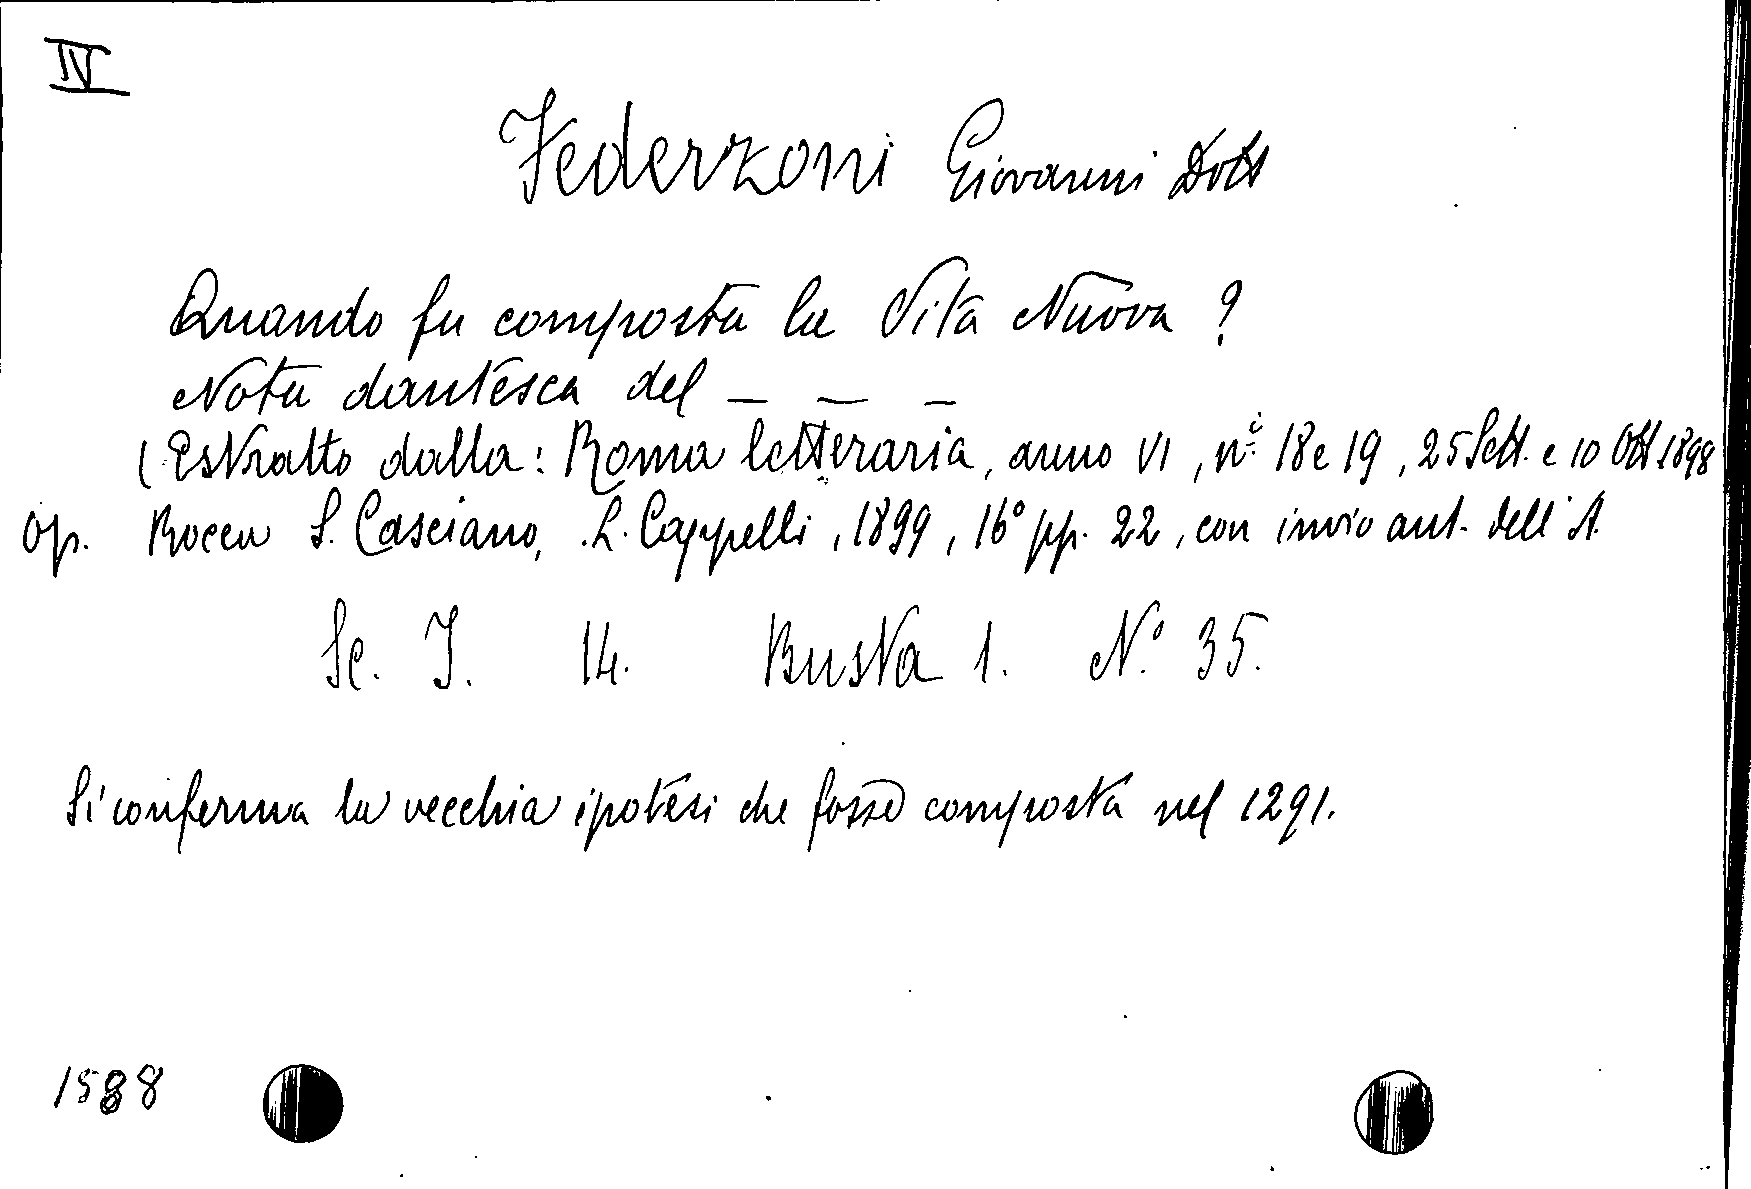 IV
Federzoni Giovanni Dott
Quando fu composta la Vita Nuova ?
Nota dantesca del _ _ _
(Estratto dalla: Roma letteraria, anno VI, nⁱ 18 e 19, 25 Sett. e 10 Ott 1898
Op. Rocca S. Casciano, L. Cappelli, 1899, 16° pp. 22, con invio aut. dell'A.
Sc. I. 14. Busta 1. N.° 35.
Si conferma la vecchia ipotesi che fosse composta nel 1291.
1588